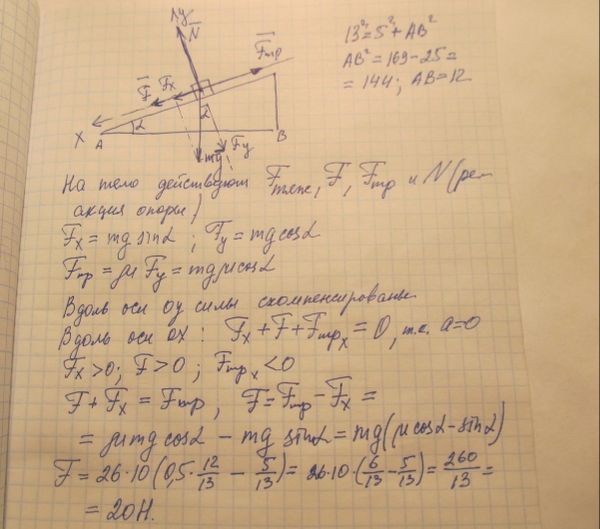 y
N
Fтр
F
Fx
α
α
X
A
B
mg
Fy
13² = 5² + AB²
AB² = 169 - 25 =
= 144; AB = 12
На тело действуют Fтяж, F, Fтр и N (ре-
акция опоры)
Fx = mg sinα ; Fy = mg cosα
Fтр = μ Fy = mgμcosα
Вдоль оси oy силы скомпенсированы
Вдоль оси OX: Fx + F + Fтрx = 0, т.к. a=0
Fx>0; F>0 ; Fтрx<0
F + Fx = Fтр, F = Fтр - Fx =
= μmg cosα - mg sinα = mg(μcosα - sinα)
F = 26·10(0,5·12/13 - 5/13) = 26·10·(6/13 - 5/13) = 260/13 =
= 20Н.